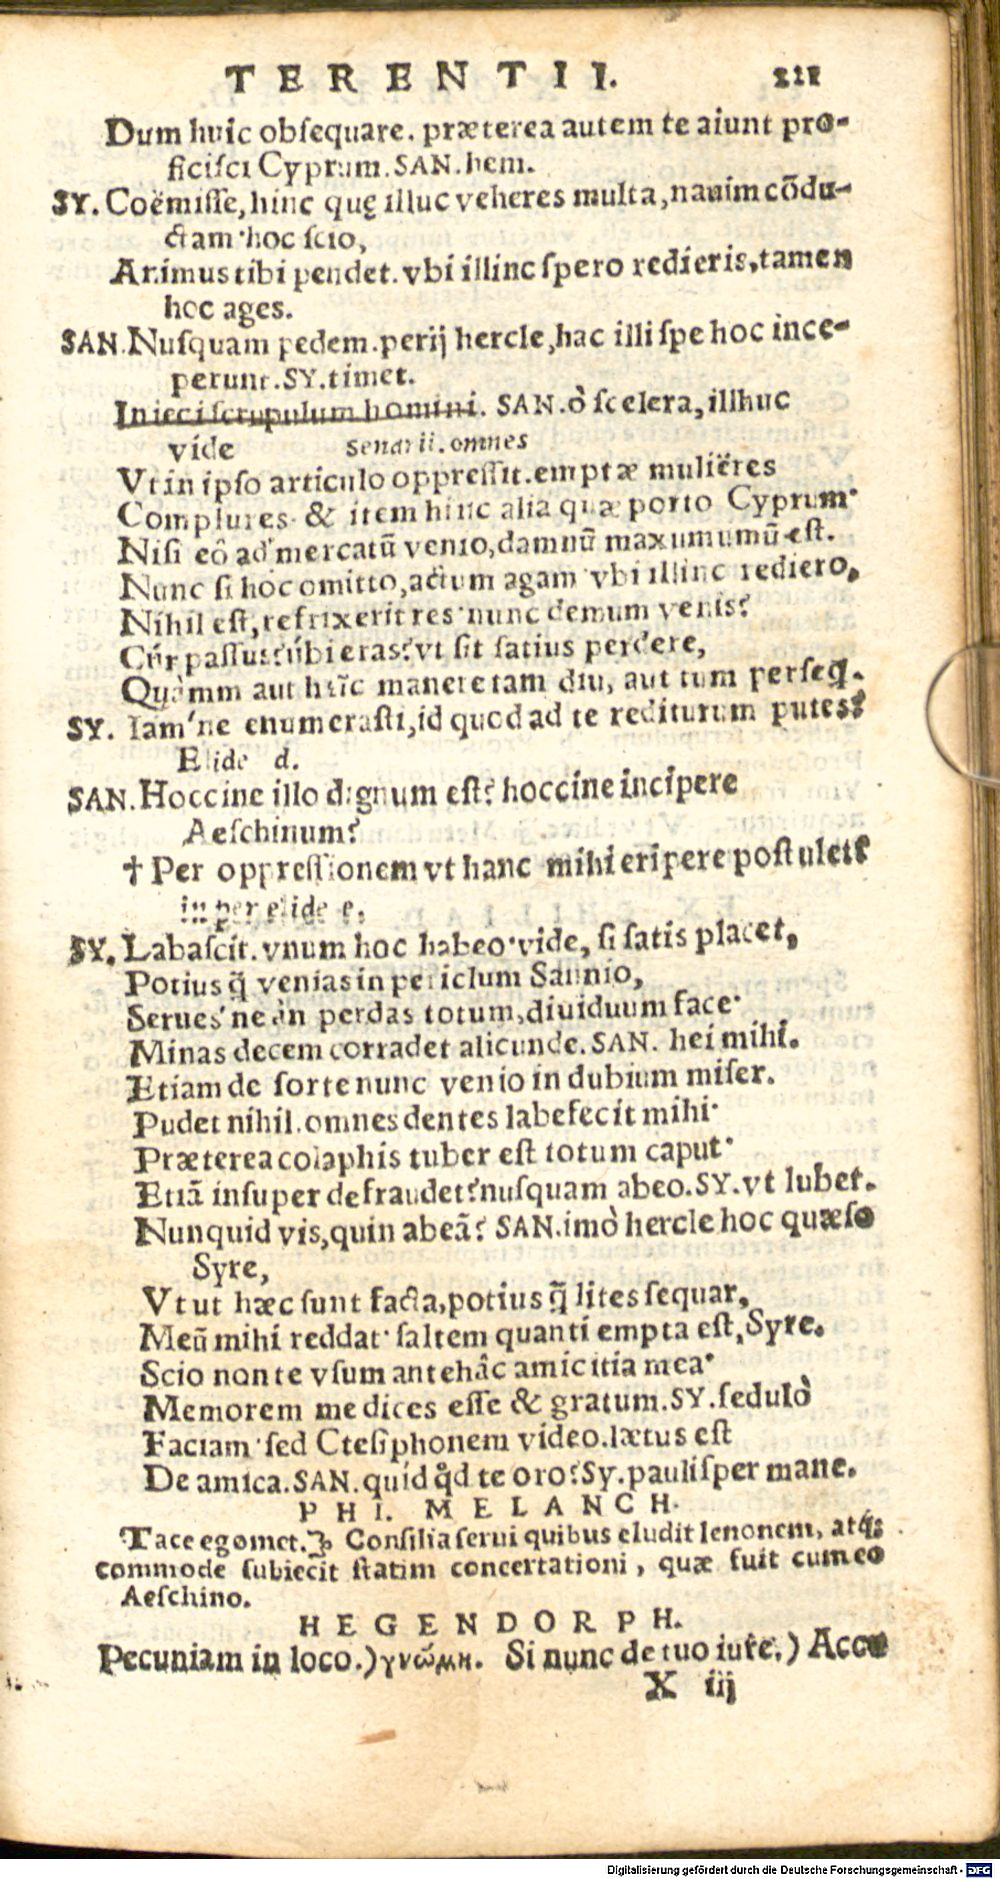 TERENTII. 211
Dum huic obsequare. præterea autem te aiunt pro-
ficisci Cyprum. SAN. hem.
SY. Coëmisse, hinc quę illuc veheres multa, nauim cōdu-
ctam· hoc scio,
Animus tibi pendet. vbi illinc spero redieris, tamen
hoc ages.
SAN. Nusquam pedem. perij hercle, hac illi spe hoc ince-
perunt. SY. timet.
Inieci scrupulum homini. SAN. ò scelera, illhuc
vide senarii. omnes
Vt in ipso articulo oppressit. emptæ mulieres
Complures· & item hinc alia quæ porto Cyprum·
Nisi eô ad mercatū venio, damnū maxumumū est.
Nunc si hoc omitto, actum agam· vbi illinc rediero,
Nihil est, refrixerit res· nunc demum venis?
Cúr passus? úbi eras? vt sit satius perdere,
Quàmm aut hîc manere tam diu, aut tum perseq.
SY. Iam'ne enumerasti, id quod ad te rediturum putes?
Elide d.
SAN. Hoccine illo dignum est? hoccine incipere
Aeschinum?
† Per oppressionem vt hanc mihi eripere postulet?
in per elide e.
SY. Labascit. vnum hoc habeo· vide, si satis placet,
Potius q̃ venias in periclum Sannio,
Serues'ne àn perdas totum, diuiduum face·
Minas decem corradet alicunde. SAN. hei mihi.
Etiam de sorte nunc venio in dubium miser.
Pudet nihil. omnes dentes labefecit mihi·
Præterea colaphis tuber est totum caput·
Etiā insuper defraudet? nusquam abeo. SY. vt lubet.
Nunquid vis, quin abeā? SAN. imò hercle hoc quæso
Syre,
Vt ut hæc sunt facta, potius q̃ lites sequar,
Meū mihi reddat· saltem quanti empta est, Syre.
Scio non te vsum antehâc amicitia mea·
Memorem me dices esse & gratum. SY. sedulò
Faciam· sed Ctesiphonem video. lætus est
De amica. SAN. quid q̃d te oro? Sy. paulisper mane.
PHI. MELANCH.
Tace egomet. Consilia serui quibus eludit lenonem, atq;
commode subiecit statim concertationi, quæ fuit cum eo
Aeschino.
HEGENDORPH.
Pecuniam in loco.) γνώμη. Si nunc de tuo iure.) Acco
X iij
Digitalisierung gefördert durch die Deutsche Forschungsgemeinschaft - DFG